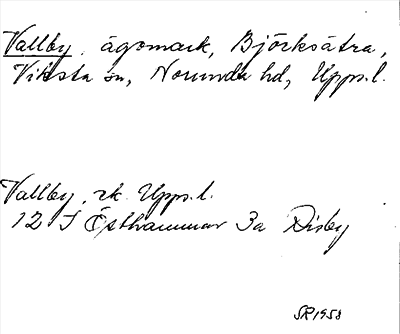 Vallby, ägomark, Björksätra,
Viksta sn, Norunda hd, Upps.l.
Vallby, rk. Upps.l.
12 I Östhammar 3a Disby
SR 1958